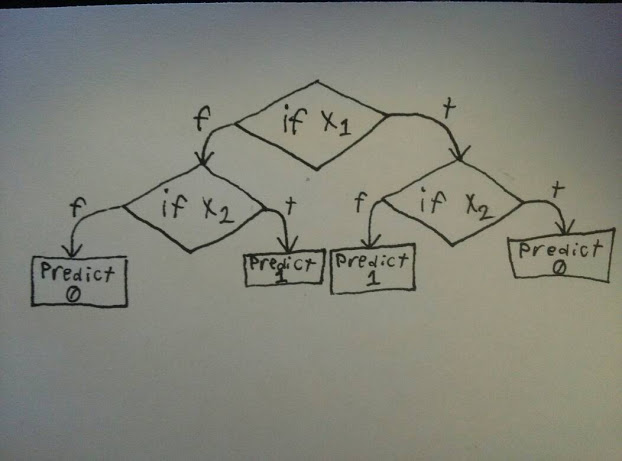 if x₁
f
t
if x₂
if x₂
f
t
f
t
Predict
0
Predict
1
Predict
1
Predict
0